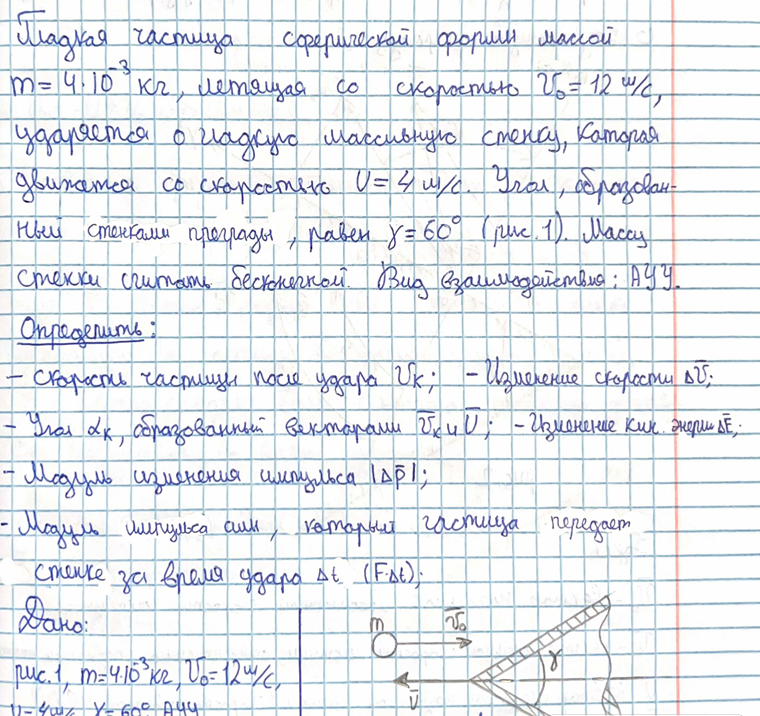 Гладкая частица сферической формы массой
m = 4·10⁻³ кг, летящая со скоростью V̄₀ = 12 м/с,
ударяется о гладкую массивную стенку, которая
движется со скоростью U = 4 м/с. Угол, образован-
ный стенками преграды, равен γ = 60° (рис. 1). Массу
стенки считать бесконечной. Вид взаимодействия: АУУ.
Определить:
- Скорость частицы после удара Vк; - Изменение скорости ΔV̄;
- Угол αк, образованный векторами V̄к и Ū; - Изменение кин. энергии ΔĒ;
- Модуль изменения импульса |Δp̄|;
- Модуль импульса силы, который частица передает
стенке за время удара Δt (F·Δt);
Дано:
m V̄₀
рис. 1, m = 4·10⁻³ кг, V₀ = 12 м/с,
γ
Ū
U = 4 м/с, γ = 60°, АУУ